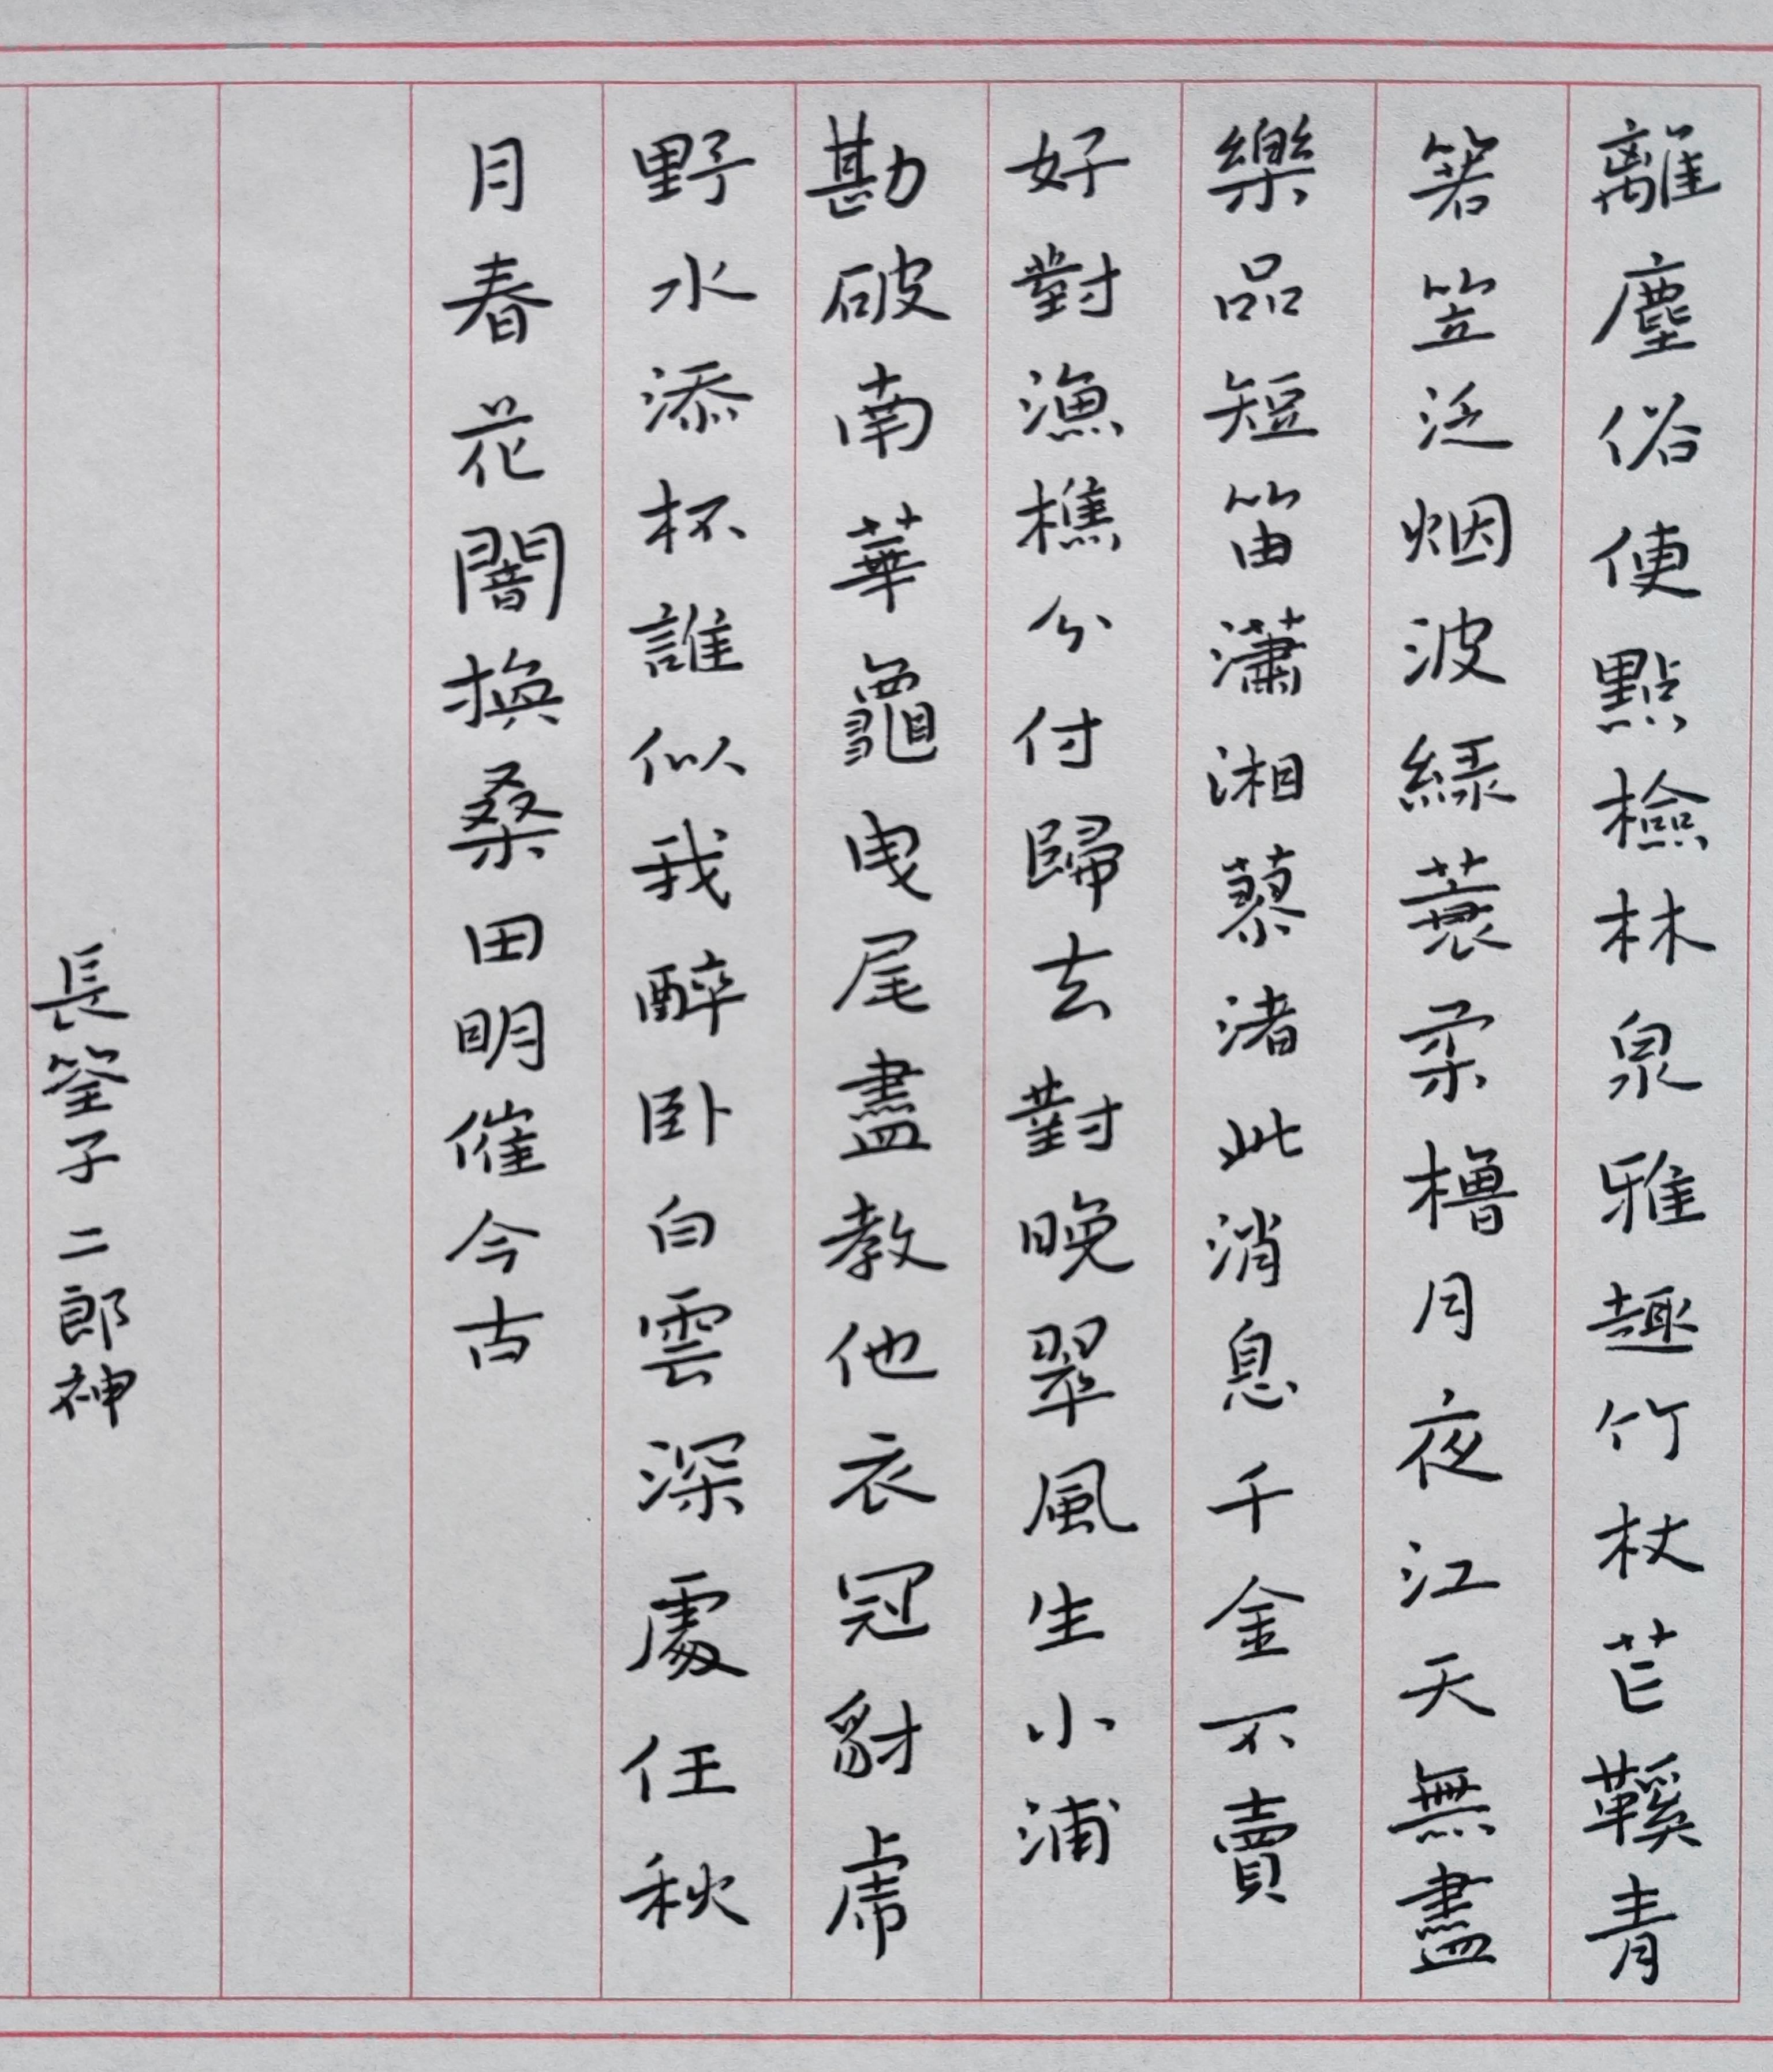 離塵俗便點檢林泉雅趣竹杖芒鞵青
箬笠泛烟波綠蓑柔櫓月夜江天無盡
樂品短笛瀟湘蓼渚此消息千金不賣
好對漁樵分付歸去對晚翠風生小浦
勘破南華龜曳尾盡教他衣冠豺虎
野水添杯誰似我醉卧白雲深處任秋
月春花闇換桑田明催今古
長筌子二郎神